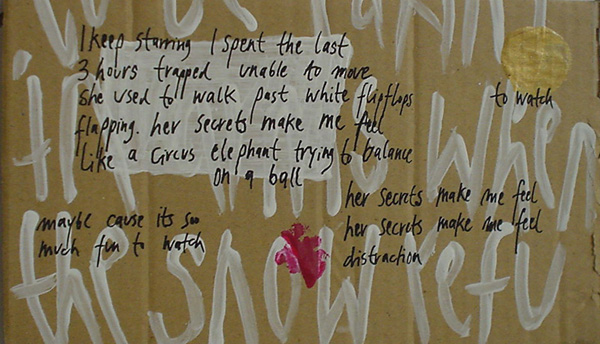 I keep starring I spent the last
3 hours trapped unable to move
she used to walk past white flipflops to watch
flapping. her secrets make me feel
like a circus elephant trying to balance
on a ball
her secrets make me feel
maybe cause its soo her secrets make me feel
much fun to watch distraction
when
the snow refu